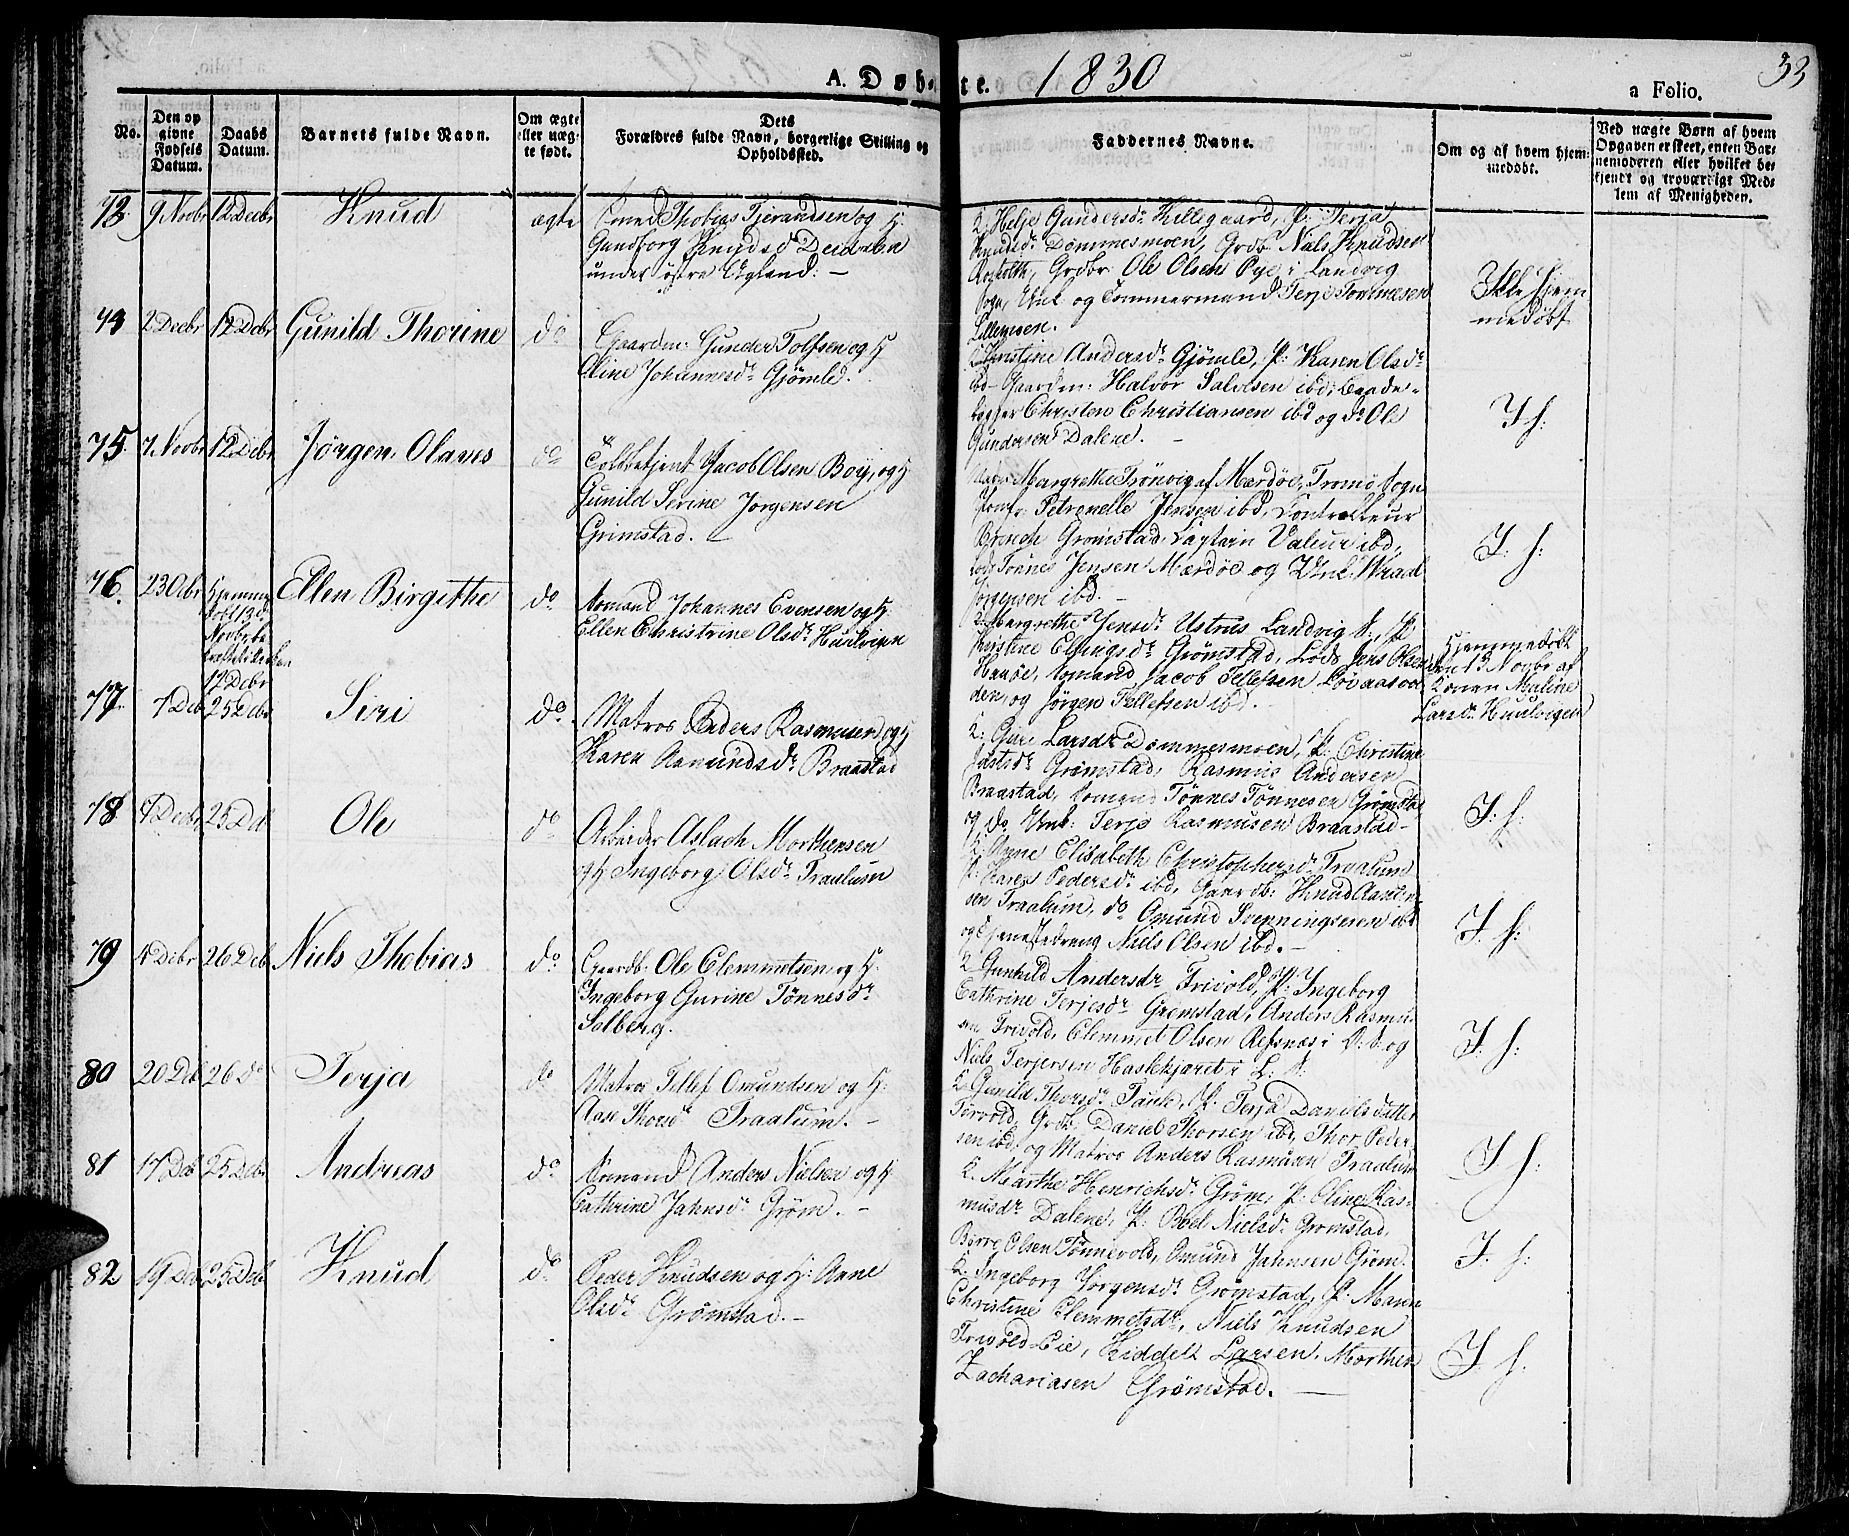 A. Døbte. 1830
a Folio. 33
No.
Den op
givne
Fødsels
Datum.
Daabs
Datum.
Barnets fulde Navn.
Om ægte
eller uæg-
te født.
Dets
Forældres fulde Navn, borgerlige Stilling og
Opholdssted.
Faddernes Navne.
Om og af hvem hjem-
medøbt.
Ved uægte Børn af hvem
Opgaven er skeet, enten Bar-
nemoderen eller hvilket be-
kjendt og troværdigt Med-
lem af Menigheden.
73. 9 Novbr 12 Decbr Knud ægte Thobias Tjerandsen og H:
Gundborg Knudsdr Deidalen
under østre Egeland: –
K: Helje Gundersdr Hillegaard, P: Terja
Knudsdr Dømmesmoen, Grdbr Niels Knudsen
Grdbr Ole Olsen Øye i Landvig
Sogn, Unk og Tømmermand Terje Tommesen
Lillemoen.
Ikke hjem
medøbt
74 2 Decbr 12 Decbr Gunild Thorine do
Gaardm: Gunder Tolfsen og H
Oline Johannesdr Gjømle.
Christine Andersdr Gjömle, P: Karen Olsdr
ibd – Gaardm: Halvor Salvesen ibd,
Christen Christiansen ibd og do Ole
Gundersen Dalene. –
I h:
75. 7 Novbr 12 Decbr Jørgen Olaves do
Toldbetjent Jacob Olsen Boy, og H
Gunild Serine Jørgensen
Grimstad. –
Margrethe Trönvig af Mærdöe, Tromö Sogn
Jomfr Petronelle Jensen ibd, Controlleur
Brinch Grømstad, Captain Valeur ibd,
Lods Tønnes Jensen Mærdöe og Unk: Wraal
Jörgensen ibd. –
I: h:
76. 23 Ocbr Hjemme
døbt 13de
Novbr be
kræftet i Kirken
12 Decbr
Ellen Birgithe do
Somand Johannes Evensen og H.
Ellen Christine Olsdr Huulvigen
K: Margrethe Jensdr Ustrus Landvig S:, P:
Christine Ellingsdr Grømstad, Lods Jens Olsen
Hauöe, Somand Jacob Tellefsen
og Jörgen Tellefsen ibd. –
Hjemmedøbt
den 13 Novbr af
Konen Maline
Larsdr Huulvigen
77. 7 Deb 25 Debr Siri do.
Matros Anders Rasmusen og H
Karen Aanundsdr Braastad
K: Gure Larsdr Dømmesmoen, P: Christine
Justsdr Grømstad, Rasmus Andersen
Braastad, Somand Tönnes Tönnesen Grømstad
og do Unk: Terje Rasmusen Braastad –
I: h:
78 4 Decbr 25 Deb Ole do
Arbeider Aslach Morthensen
og H Ingeborg Olsdr Traalum
K: Anne Elisabeth Christophersdr Traalum
P: Karen Pedersdr ibd, Gaardb: Knud Aanun-
sen Traalum, do Omund Svenningsen ibd
og Tjenestedreng Niels Olsen ibd. –
I: h:
79 4 Decbr 26 Deb Niels Thobias do
Gaardb: Ole Clemmetsen og H.
Ingeborg Gurine Tönnesdr
Solberg.
K Gunhild Andersdr Frivold, P: Ingeborg
Cathrine Terjesdr Grømstad, Anders Rasmu-
sen Frivold, Clemmet Olsen Refsnæs i Ö: S og
Niels Terjersen Haslekjæret i L: S.
I: h:
80 20 Deb 26 do Terja do
Matros Tellef Omundsen og H:
Aase Thorsdr Traalum. –
K Gunild Thorsdr P: Terja Daniels datter
Törvold, Grdb: Daniel Thorsen ibd, Thor Peder-
sen ibd, og Matros Anders Rasmusen Traalum
I h:
81 17 Deb 25 Debr Andreas do
Somand Anders Nielsen og H
Cathrine Jahnsdr Gröm. –
K. Marthe Henrichsdr Gröm, P: Oline Ras-
musdr Dalene, P: Boel Nielsdr Gromstad,
Börre Olsen Tönnevold, Omund Jahnsen Gröm.
I. h:
82 19 Deb 25 Deb Knud do
Peder Knudsen og H: Anne
Olsdr Grömstad. –
K. Ingeborg Jörgensdr Grømstad, P: Maren
Christine Clemmetsdr, Niels Knudsen
Frivold Eie, Kiddel Larsen, Morthen
Zachariasen Grömstad. –
I: h: